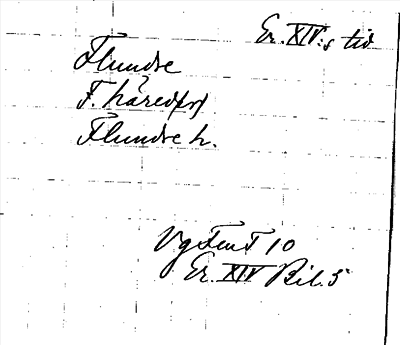 Er. XIV:s tid
Flundre
F. häred(s)
Flundre h.
Vg Fem F 10
Er. XIV Bil. 5